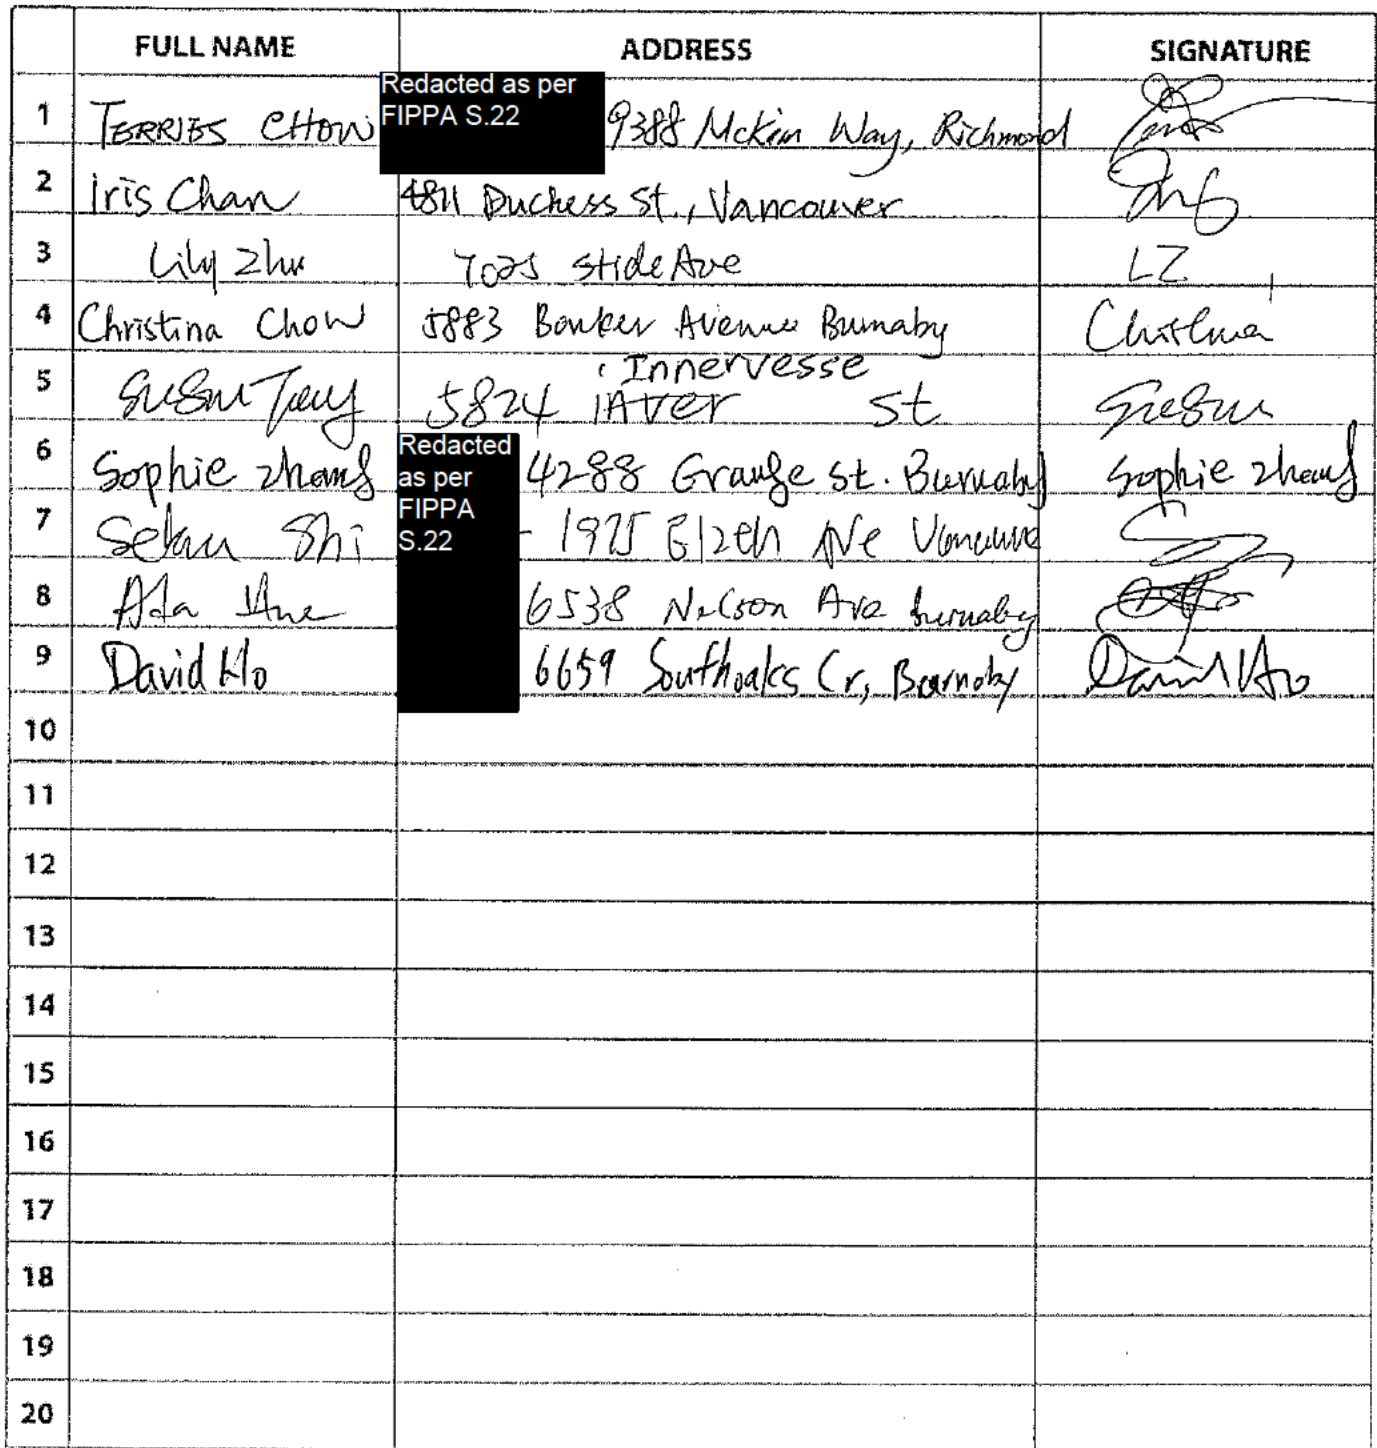 FULL NAME ADDRESS SIGNATURE
1 TERRIES CHOW Redacted as per FIPPA S.22 9388 McKim Way, Richmond
2 Iris Chan 4811 Duchess St., Vancouver
3 Lily Zhu 7025 stride Ave LZ
4 Christina Chow 5883 Avenue Burnaby Christina
Innervesse
5 Susan 5824 INVER St Susan
6 Sophie Zhang Redacted as per FIPPA S.22 4288 Grange St. Burnaby Sophie Zhang
7 Shi - 1975 Ave Vancouver
8 Ada 6538 Nelson Ave burnaby
9 David Ho 6659 Southoaks Cr, Burnaby David Ho
10
11
12
13
14
15
16
17
18
19
20